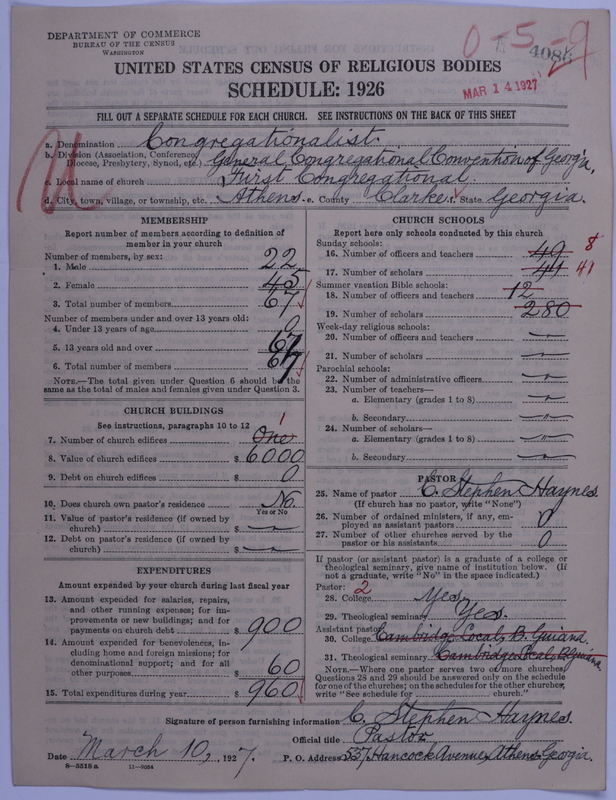 DEPARTMENT OF COMMERCE
BUREAU OF THE CENSUS
WASHINGTON
0-5-9
4086
MAR 14 1927
UNITED STATES CENSUS OF RELIGIOUS BODIES
SCHEDULE: 1926
FILL OUT A SEPARATE SCHEDULE FOR EACH CHURCH. SEE INSTRUCTIONS ON THE BACK OF THIS SHEET
a. Denomination Congregationalist.
b. Division (Association, Conference, Diocese, Presbytery, Synod, etc.) General Congregational Convention of Georgia,
c. Local name of church First Congregational
d. City, town, village, or township, etc. Athens e. County Clarke f. State Georgia.
MEMBERSHIP
Report number of members according to definition of
member in your church
Number of members, by sex:
1. Male 22
2. Female 45
3. Total number of members 67
Number of members under and over 13 years old:
4. Under 13 years of age 0
5. 13 years old and over 67
6. Total number of members 67
NOTE.—The total given under Question 6 should be the
same as the total of males and females given under Question 3.
CHURCH BUILDINGS
See instructions, paragraphs 10 to 12
1
7. Number of church edifices One
8. Value of church edifices $ 6000
9. Debt on church edifices $ 0
10. Does church own pastor's residence No.
Yes or No
11. Value of pastor's residence (if owned by
church) $
12. Debt on pastor's residence (if owned by
church) $
EXPENDITURES
Amount expended by your church during last fiscal year
13. Amount expended for salaries, repairs,
and other running expenses; for im-
provements or new buildings; and for
payments on church debt $ 900
14. Amount expended for benevolences, in-
cluding home and foreign missions; for
denominational support; and for all
other purposes $ 60
15. Total expenditures during year $ 960
CHURCH SCHOOLS
Report here only schools conducted by this church
Sunday schools:
16. Number of officers and teachers 49 8
17. Number of scholars 41 41
Summer vacation Bible schools:
18. Number of officers and teachers 12
19. Number of scholars 280
Week-day religious schools:
20. Number of officers and teachers
21. Number of scholars
Parochial schools:
22. Number of administrative officers
23. Number of teachers—
a. Elementary (grades 1 to 8)
b. Secondary
24. Number of scholars—
a. Elementary (grades 1 to 8)
b. Secondary
PASTOR
25. Name of pastor C. Stephen Haynes
(If church has no pastor, write "None")
26. Number of ordained ministers, if any, em-
ployed as assistant pastors 0
27. Number of other churches served by the
pastor or his assistants 0
If pastor (or assistant pastor) is a graduate of a college or
theological seminary, give name of institution below. (If
not a graduate, write "No" in the space indicated.)
Pastor: 2
28. College Yes
29. Theological seminary Yes.
Assistant pastor:
30. College Cambridge Local, B. Guiana.
31. Theological seminary Cambridge Local, B. Guiana.
NOTE.—Where one pastor serves two or more churches,
Questions 28 and 29 should be answered only on the schedule
for one of the churches; on the schedules for the other churches,
write "See schedule for church."
Signature of person furnishing information C. Stephen Haynes.
Official title Pastor
Date March 10, 1927. P. O. Address 537 Hancock Avenue, Athens Georgia.
8—5518a 11—9554